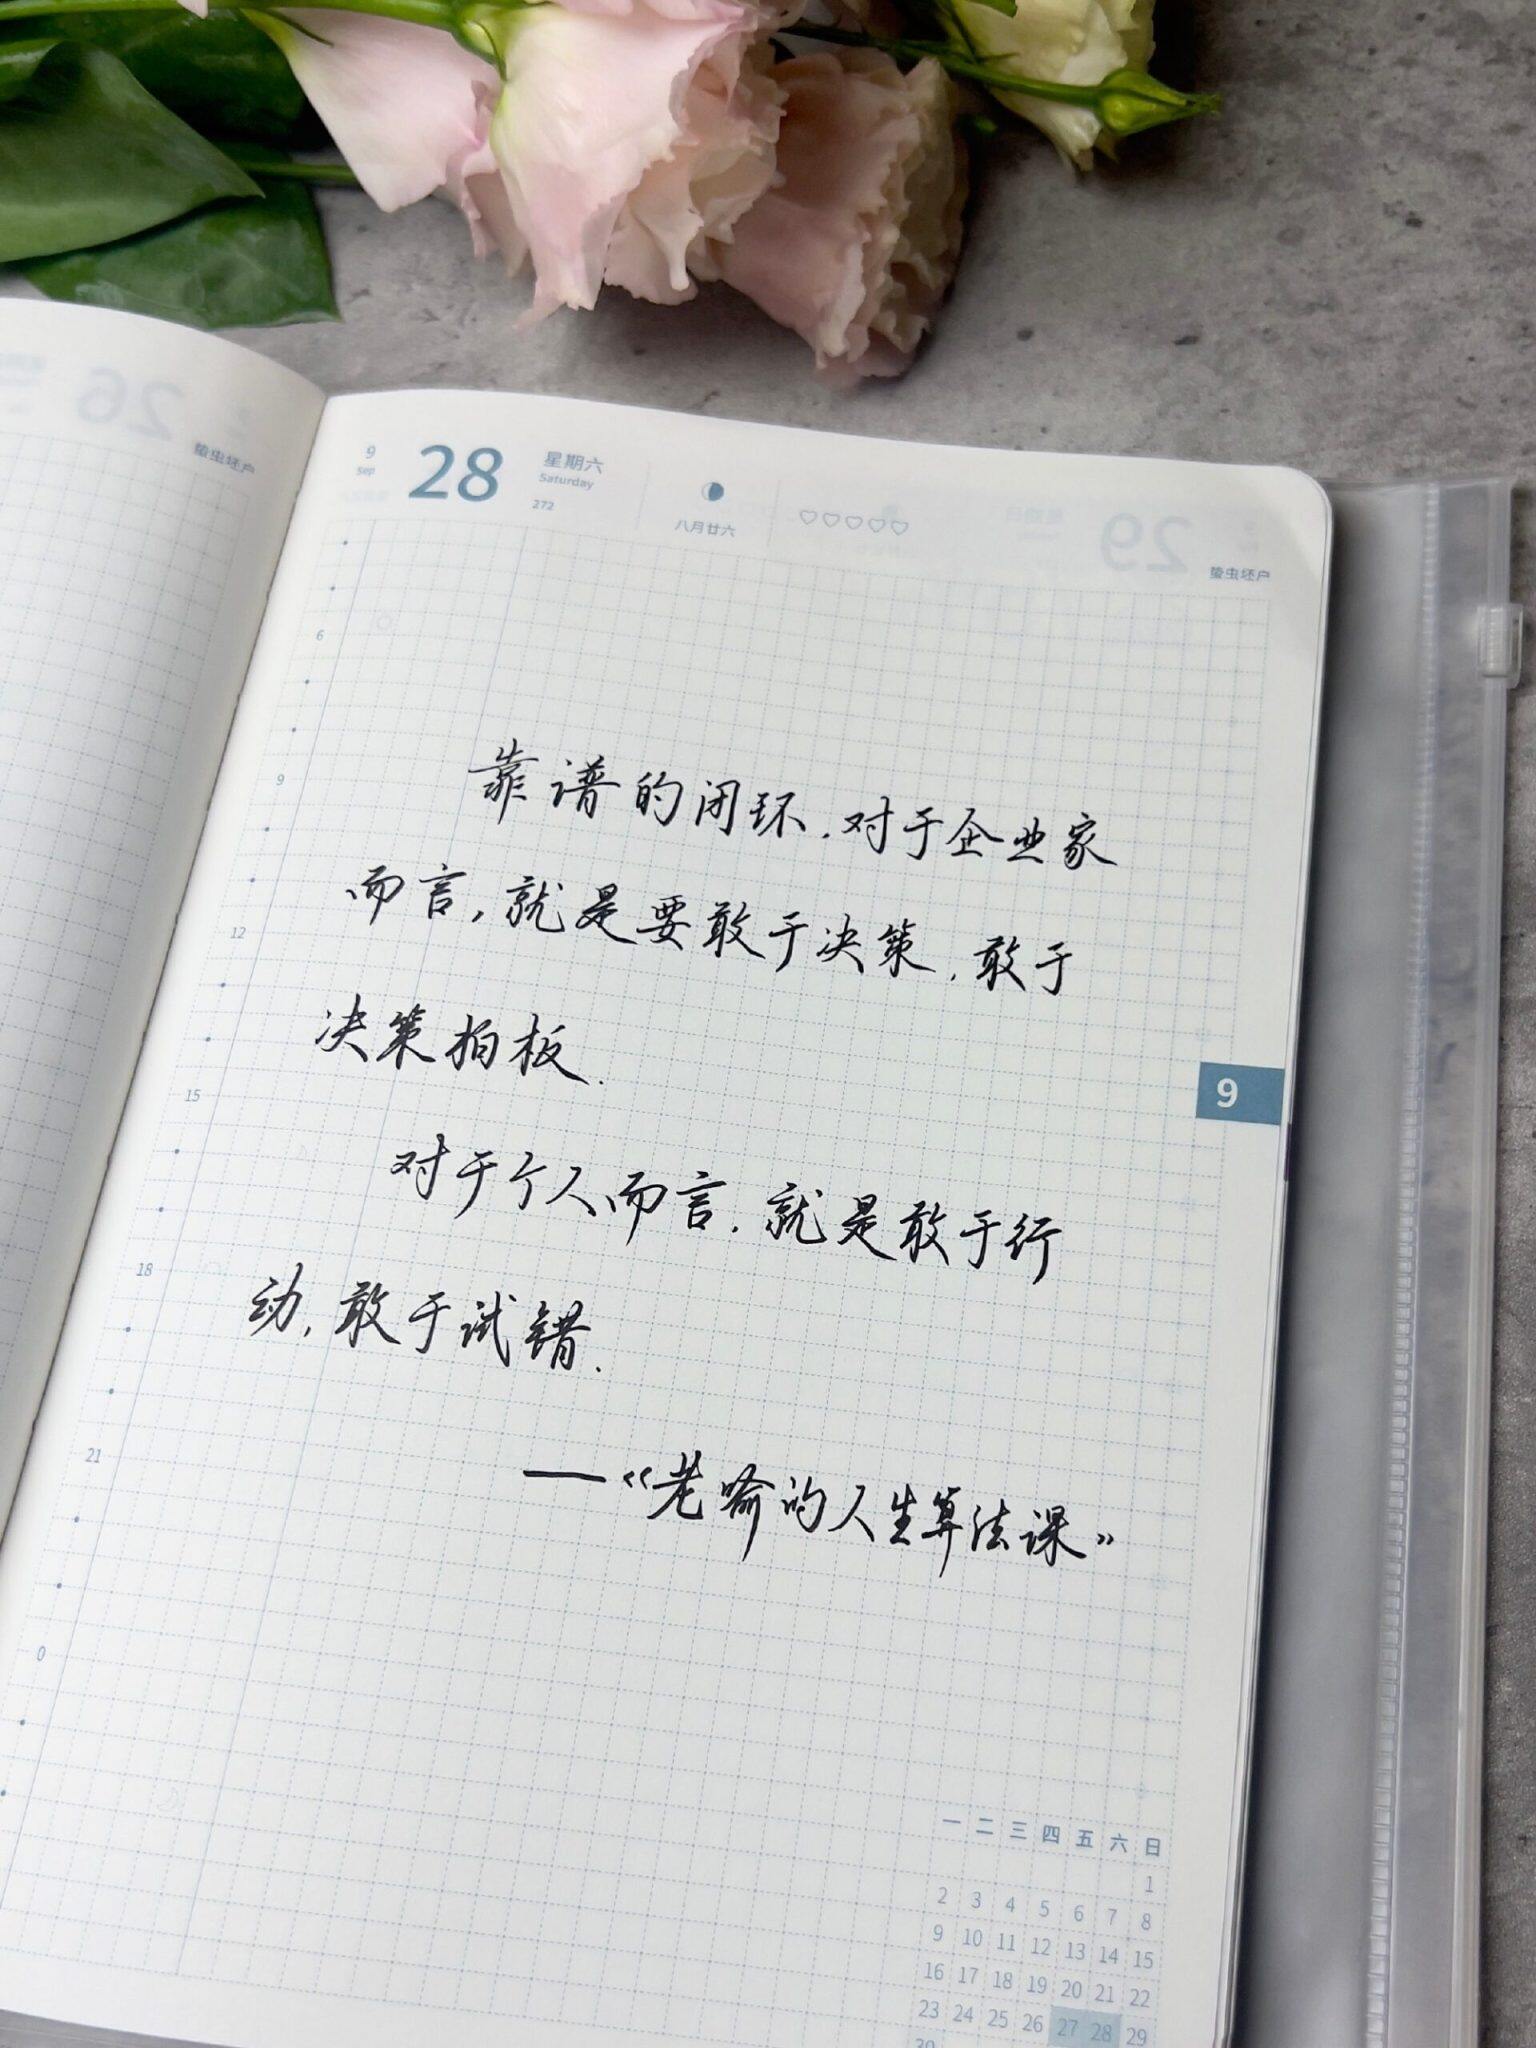 9
Sep
28
星期六
Saturday
272
八月廿六
蛰虫坯户
26
蛰虫坯户
29
6
9
12
15
18
21
0
靠谱的闭环,对于企业家
而言,就是要敢于决策,敢于
决策拍板.
对于个人而言,就是敢于行
动,敢于试错.
——《老喻的人生算法课》
9
一 二 三 四 五 六 日
1
2 3 4 5 6 7 8
9 10 11 12 13 14 15
16 17 18 19 20 21 22
23 24 25 26 27 28 29
30